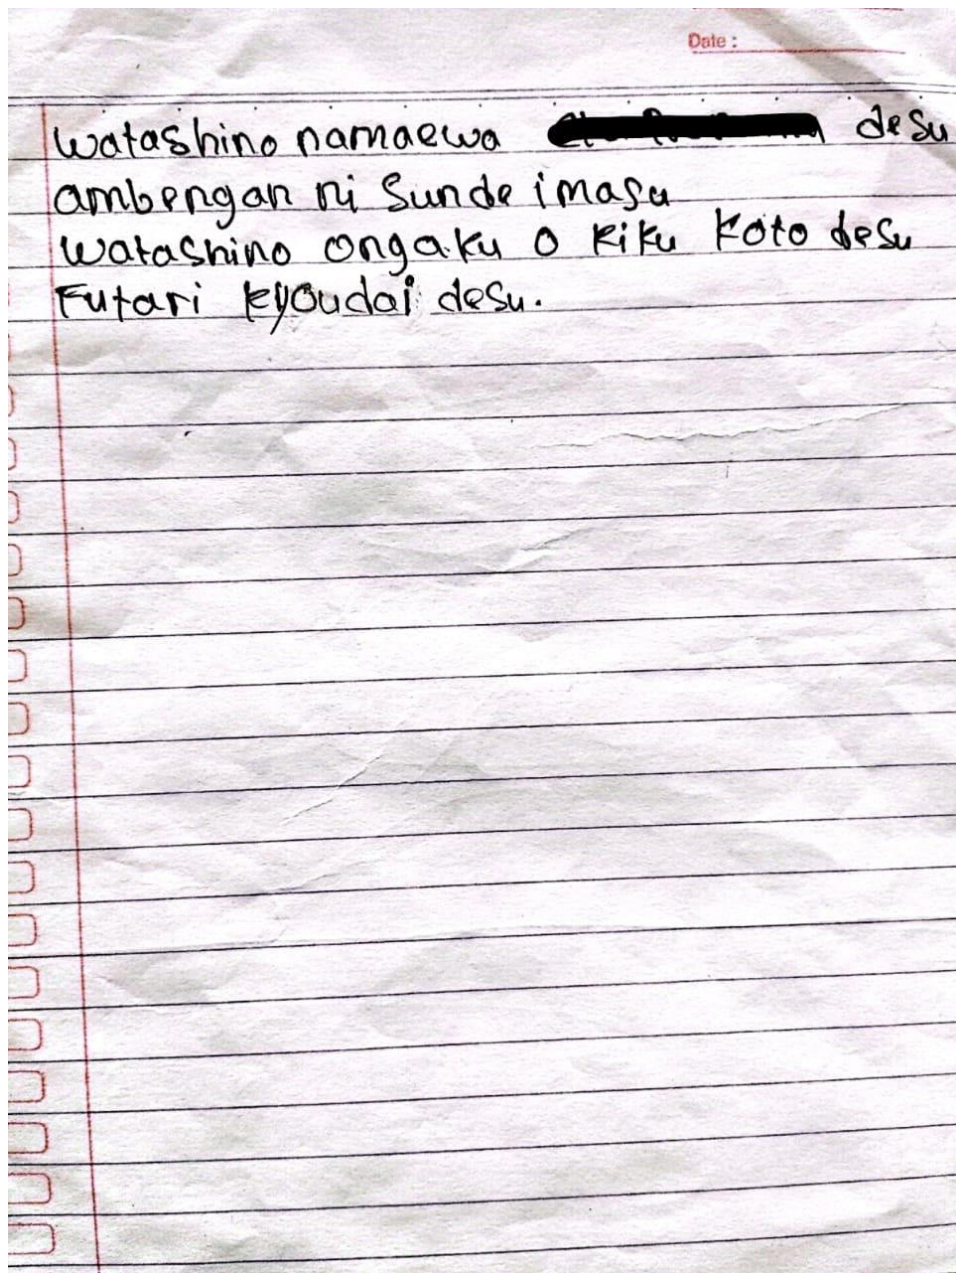 Date :
watashino namaewa desu
ambengan ni Sunde imasu
watashino ongaku o kiku koto desu
Futari kyoudai desu.